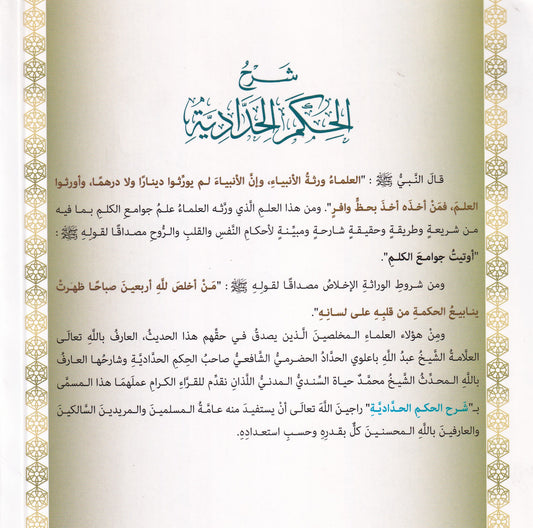 شَرْحُ
الحِكَمِ الحَدَّادِيَّةِ
قالَ النَّبيُّ ﷺ : "العلماءُ ورثةُ الأنبياءِ، وإنَّ الأنبياءَ لـم يورِّثوا دينارًا ولا درهمًا، وأورثوا
العلمَ، فمَنْ أخذَه أخذَ بحظٍّ وافرٍ". ومن هذا العلمِ الَّذي ورَّثه العلماءُ علمُ جوامعِ الكلمِ بـما فيه
من شريعةٍ وطريقةٍ وحقيقةٍ شارحةٍ ومبيِّنةٍ لأحكامِ النَّفسِ والقلبِ والرُّوحِ مصداقًا لقولِه ﷺ :
"أوتيتُ جوامعَ الكلمِ".
ومن شروطِ الوراثةِ الإخلاصُ مصداقًا لقولِهِ ﷺ : "مَـنْ أخلصَ للَّهِ أربعينَ صباحًا ظهرتْ
ينابيعُ الحكمةِ من قلبِهِ على لسانِهِ".
ومِنْ هؤلاء العلماءِ المخلصينَ الَّذين يصدقُ في حقِّهم هذا الحديثُ، العارفُ باللَّهِ تعالَى
العلَّامةُ الشَّيخُ عبدُ اللَّهِ باعلوي الحدَّادُ الحضرميُّ الشَّافعيُّ صاحبُ الحِكمِ الحدَّاديَّةِ وشارحُها العارفُ
باللَّهِ الـمحدِّثُ الشَّيخُ محمَّدٌ حياة السِّنديُّ الـمدنيُّ اللَّذانِ نقدِّمُ للقرَّاءِ الكرامِ عملَهمَا هذا الـمسمَّى
بـ"شَرح الحكم الحدَّاديَّةِ" راجينَ اللَّهَ تعالَى أنْ يستفيدَ منه عامَّةُ الـمسلمينَ والـمريدينَ السَّالكينَ
والعارفينَ باللَّهِ الـمحسنينَ كلٌّ بقدرِهِ وحسبِ استعدادِهِ.